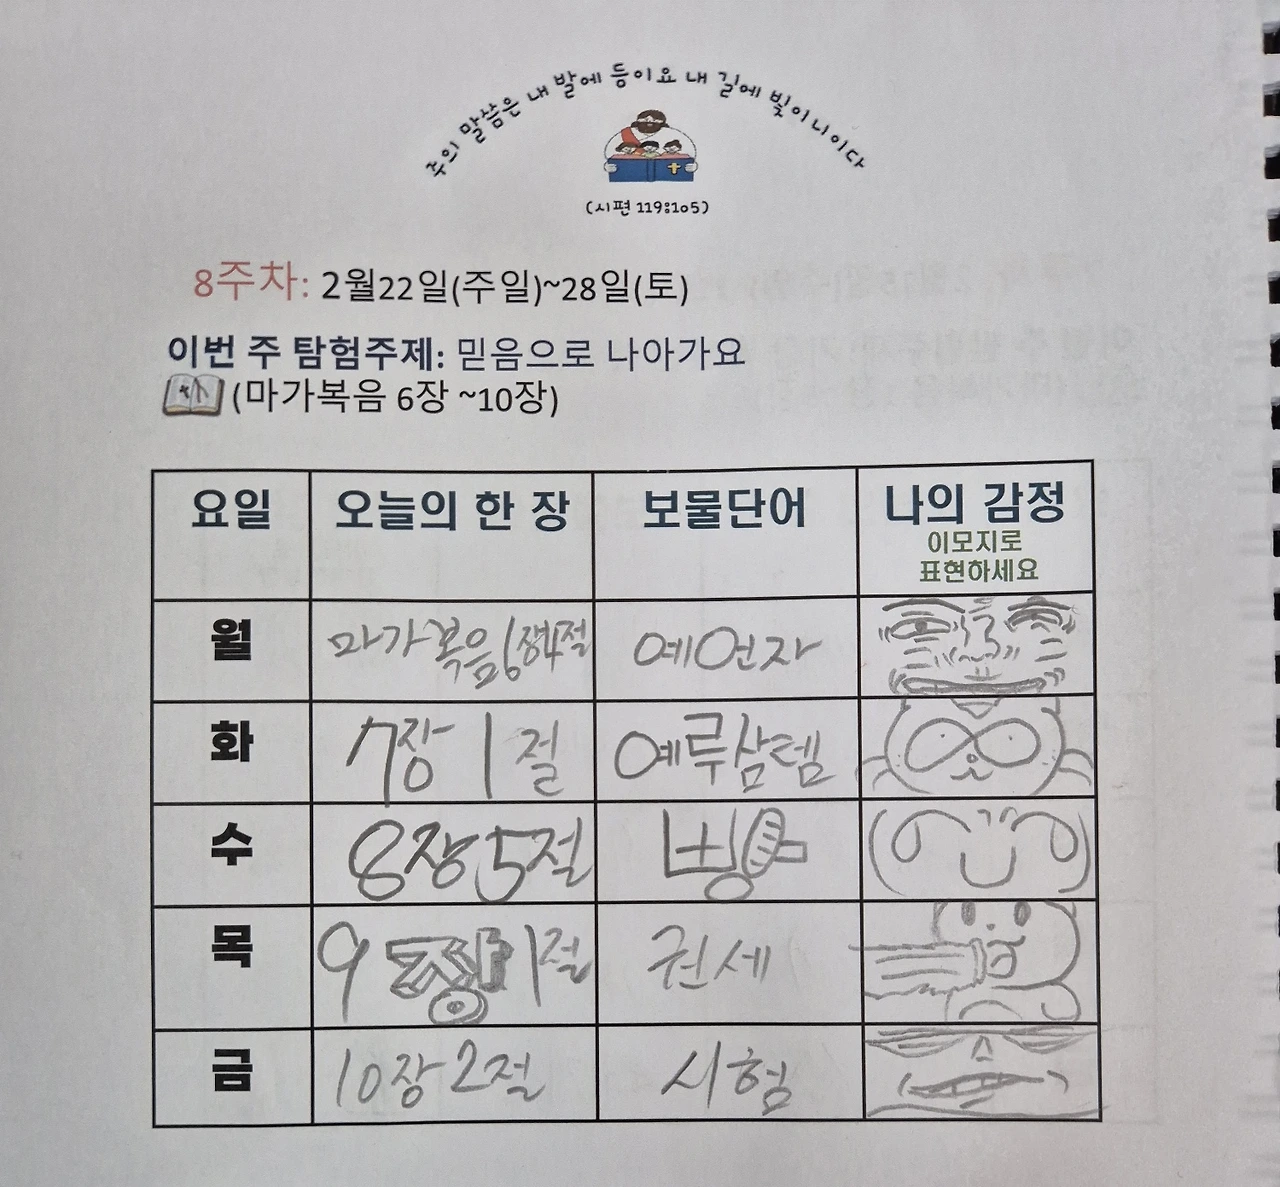 주의 말씀은 내 발에 등이요 내 길에 빛이니이다
(시편 119:105)
8주차: 2월22일(주일)~28일(토)
이번 주 탐험주제: 믿음으로 나아가요
(마가복음 6장 ~10장)
요일 오늘의 한 장 보물단어 나의 감정
이모지로
표현하세요
월 마가복음 6장4절 예언자
화 7장 1절 예루삼템
수 8장5절 빵
목 9장 1절 권세
금 10장 2절 시험